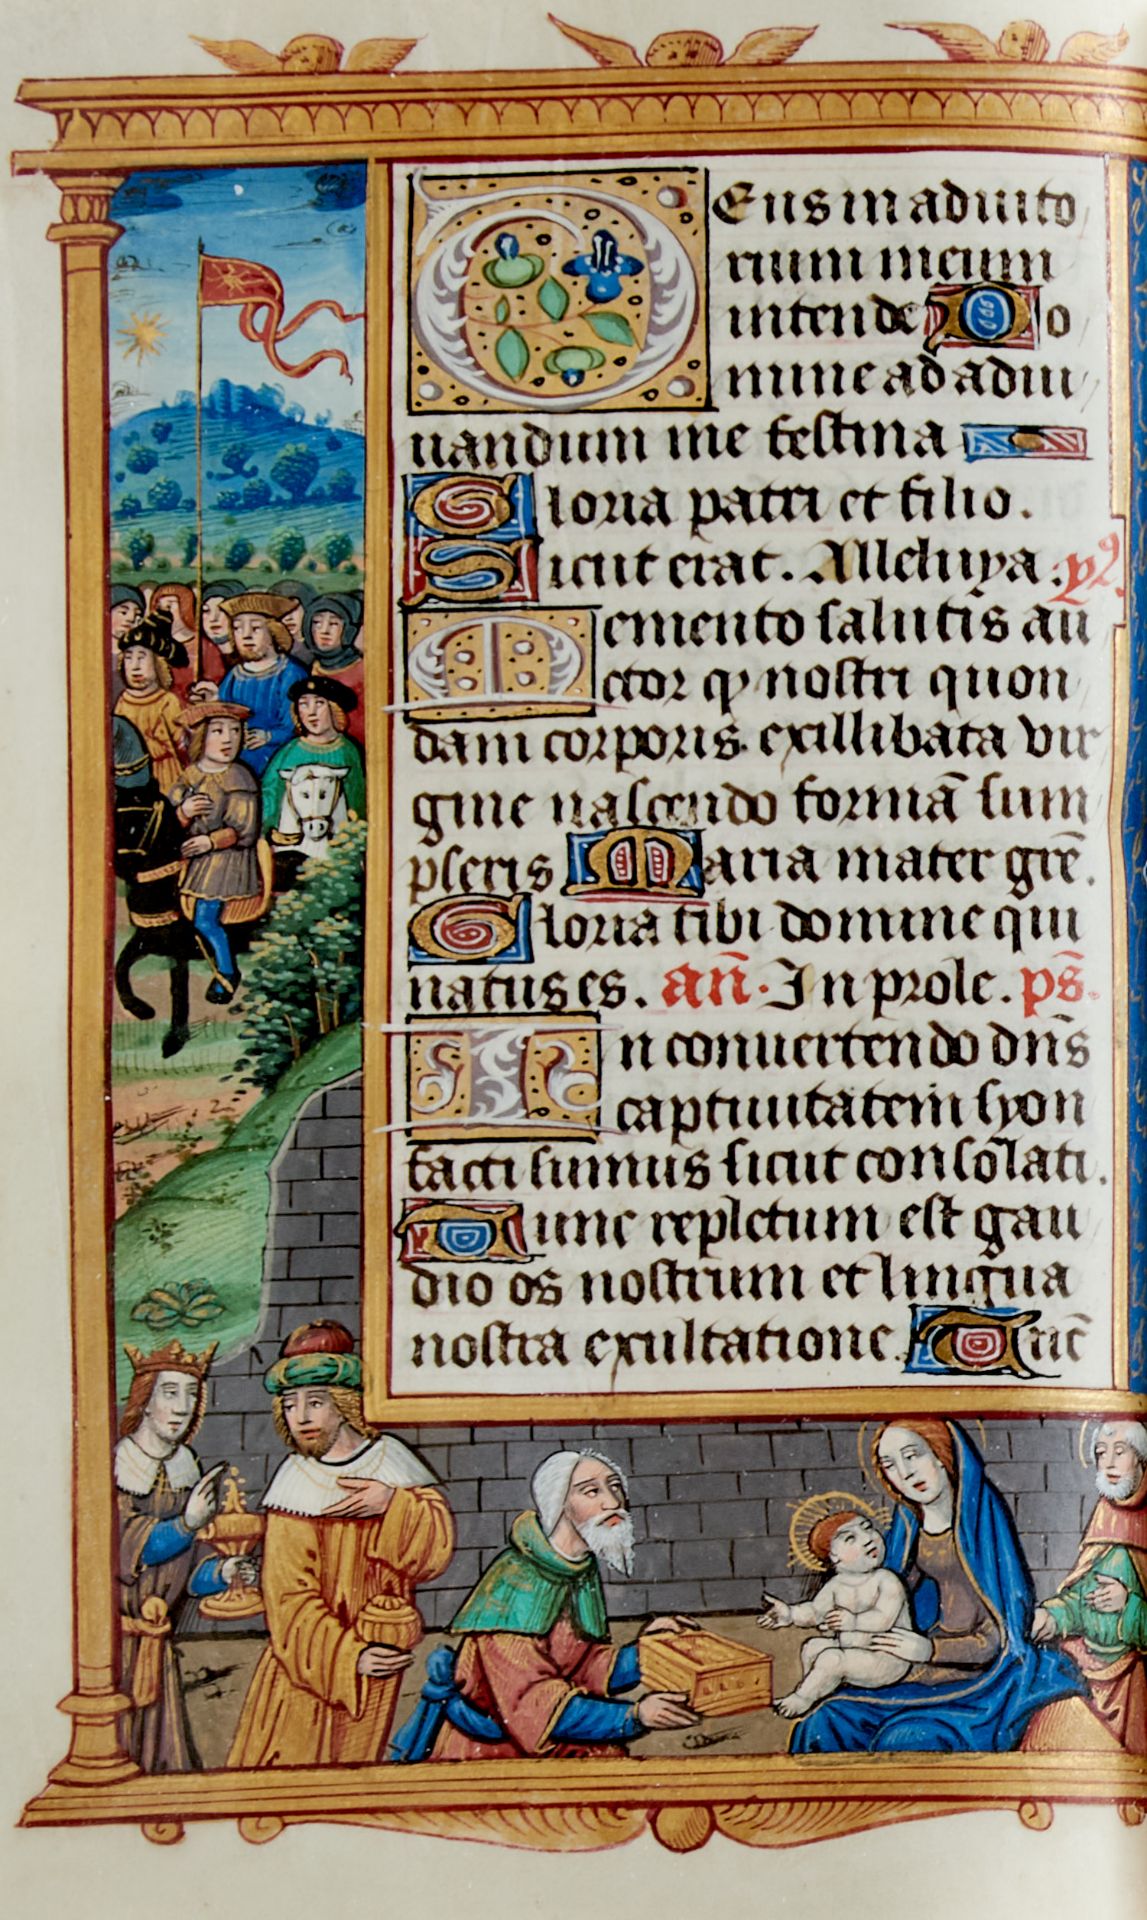 Deus in adiuto
rium meum
intende Do
mine ad adiu
uandum me festina
Gloria patri et filio.
Sicut erat. Alleluya. ẏꝰ.
Memento salutis au
ctor ꝙ nostri quon
dam corporis. exillibata vir
gine nascendo formā sum
pseris Maria mater grē.
Gloria tibi domine qui
natus es. an̄. In prole. ps̄.
In conuertendo dn̄s
captiuitatem syon
facti sumus sicut consolati.
Tunc repletum est gau
dio os nostrum et lingua
nostra exultatione. Tūc